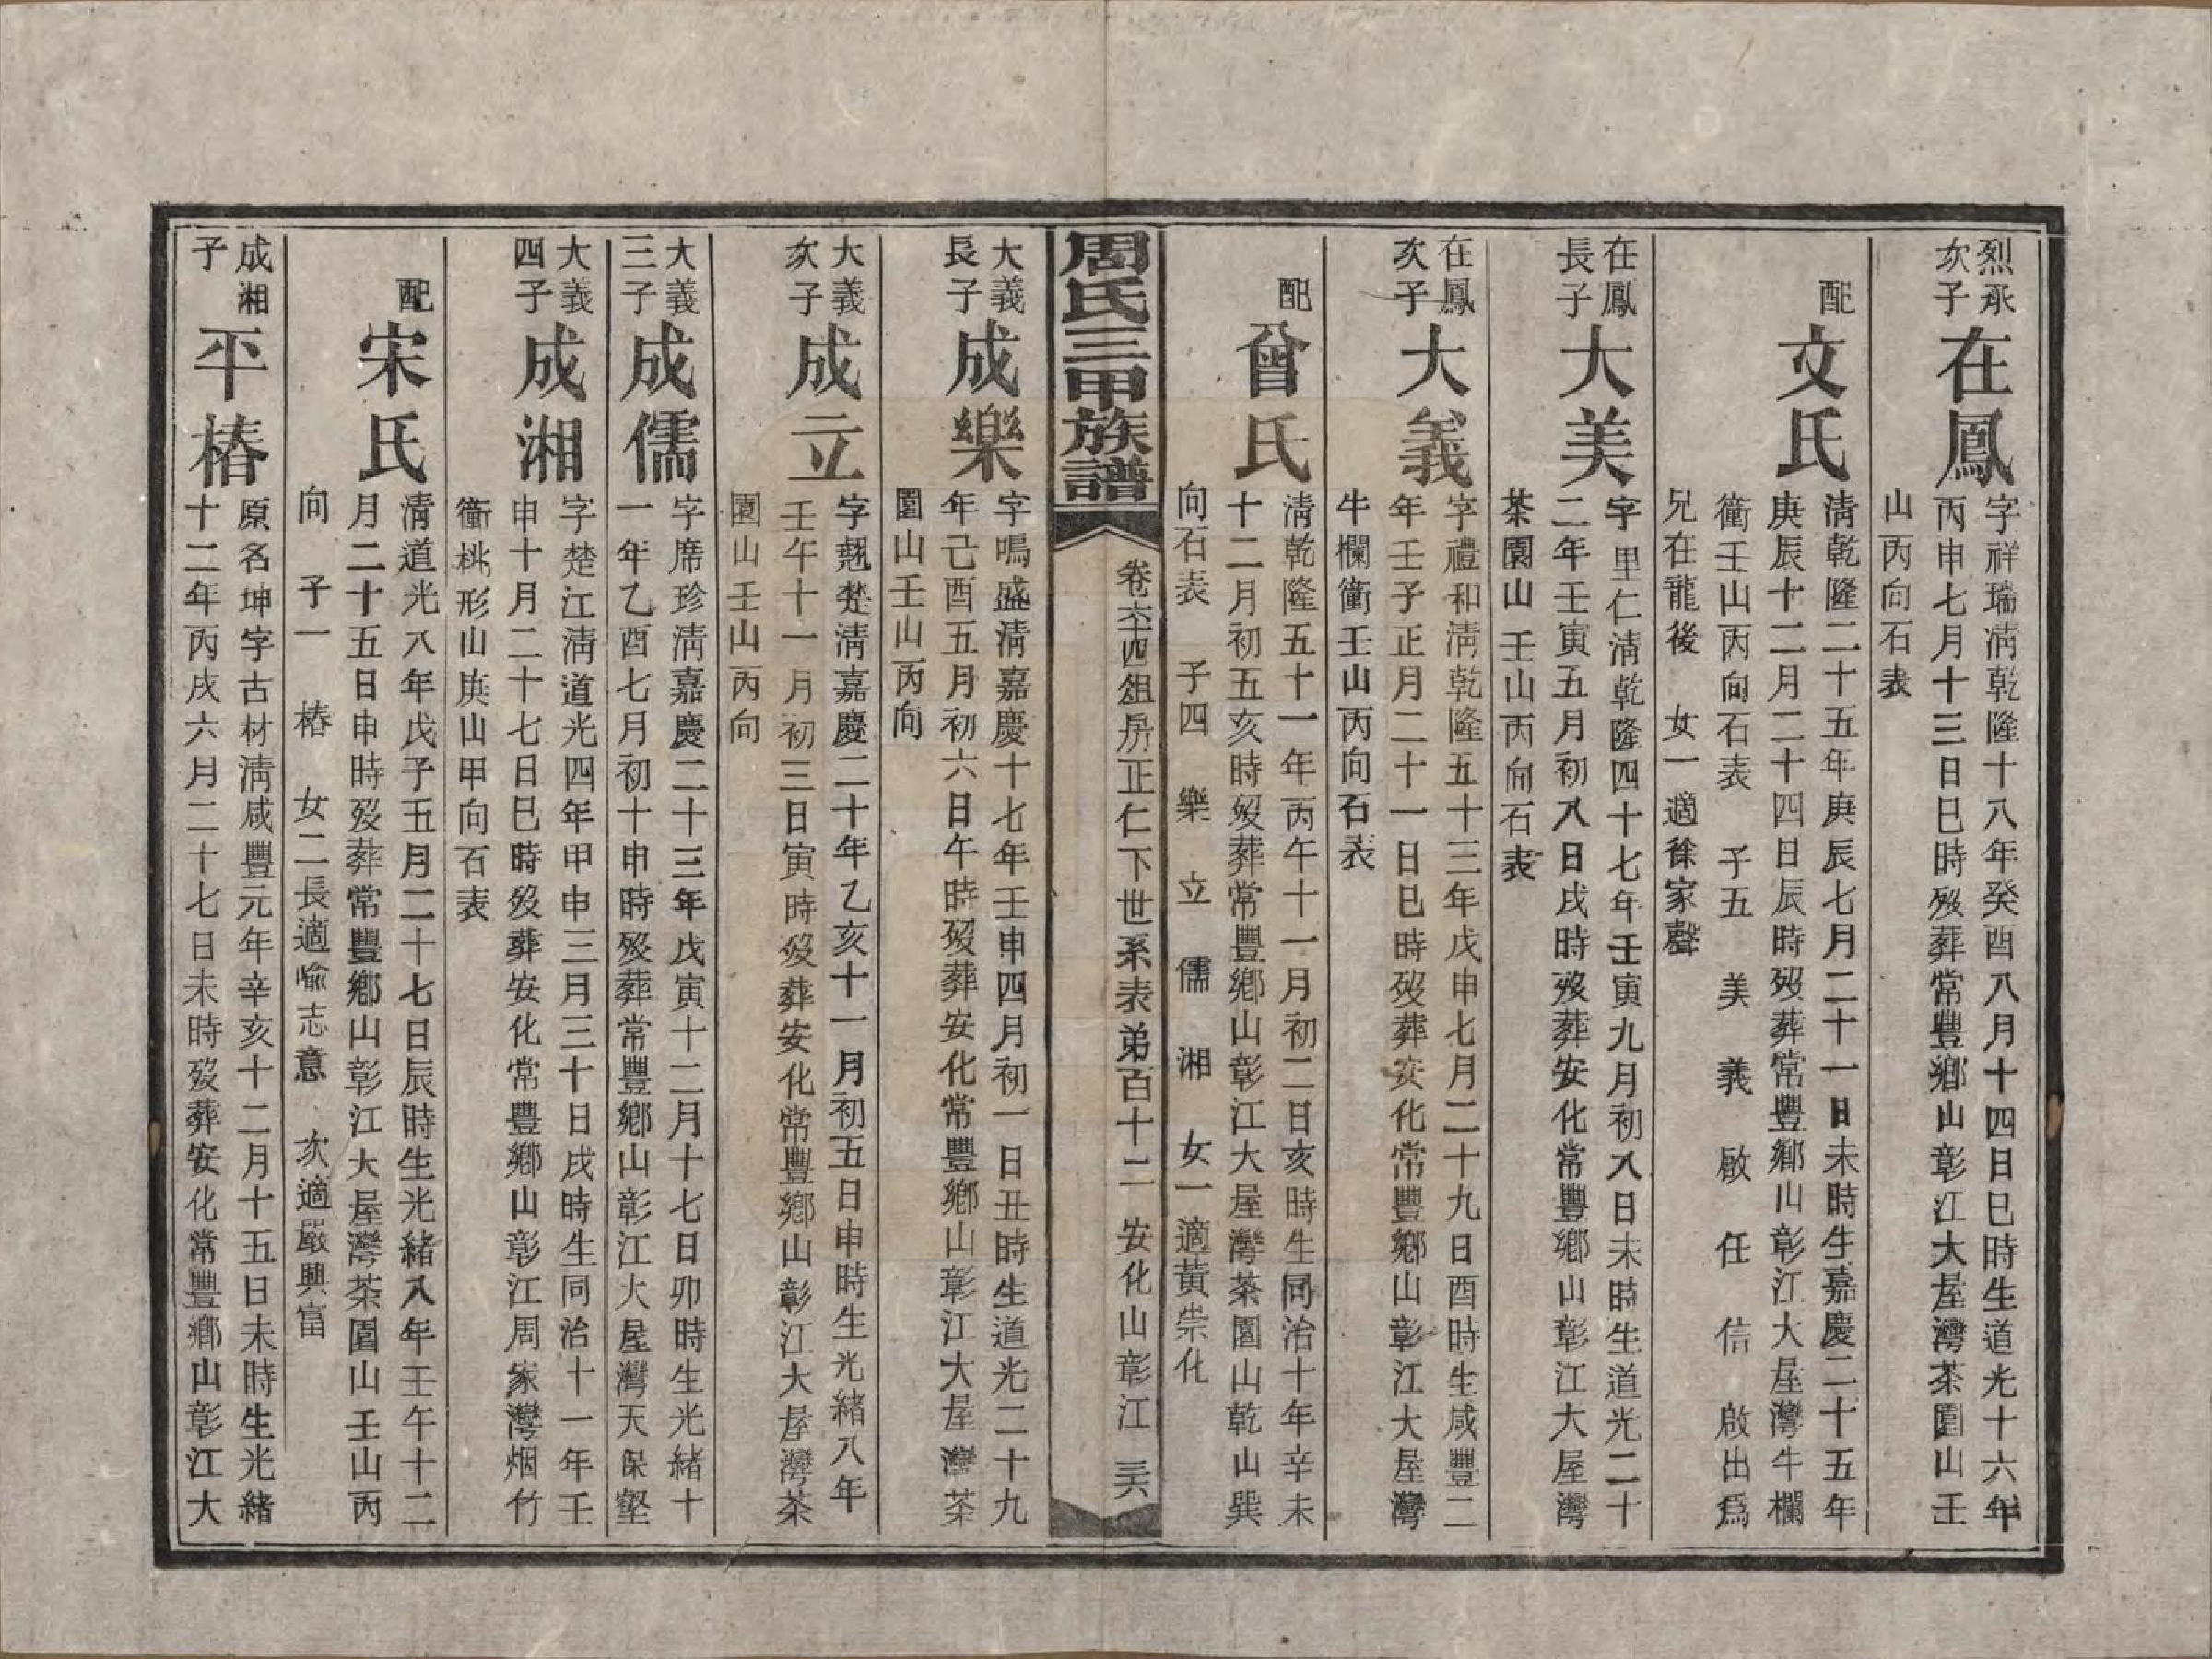 烈承
次子
在鳳
字祥瑞淸乾隆十八年癸酉八月十四日巳時生道光十六年
丙申七月十三日巳時歿葬常豐鄉山彰江大屋灣茶園山壬
山丙向石表
配
文氏
淸乾隆二十五年庚辰七月二十一日未時生嘉慶二十五年
庚辰十二月二十四日辰時歿葬常豐鄉山彰江大屋灣牛欄
衝壬山丙向石表 子五 美 義 啟 任 信 啟出爲
兄在龍後 女一適徐家聲
在鳳
長子
大美
字里仁淸乾隆四十七年壬寅九月初八日未時生道光二十
二年壬寅五月初八日戌時歿葬安化常豐鄉山彰江大屋灣
茶園山壬山丙向石表
在鳳
次子
大義
字禮和淸乾隆五十三年戊申七月二十九日酉時生咸豐二
年壬子正月二十一日巳時歿葬安化常豐鄉山彰江大屋灣
牛欄衝壬山丙向石表
配
曾氏
淸乾隆五十一年丙午十一月初二日亥時生同治十年辛未
十二月初五亥時歿葬常豐鄉山彰江大屋灣茶園山乾山巽
向石表 子四 樂 立 儒 湘 女一適黃崇化
周氏三甲族譜
卷六十四俎房正仁下世系表弟百十二 安化山彰江 三六
大義
長子
成樂
字鳴盛淸嘉慶十七年壬申四月初一日丑時生道光二十九
年己酉五月初六日午時歿葬安化常豐鄉山彰江大屋灣茶
園山壬山丙向
大義
次子
成立
字翹楚淸嘉慶二十年乙亥十一月初五日申時生光緒八年
壬午十一月初三日寅時歿葬安化常豐鄉山彰江大屋灣茶
園山壬山丙向
大義
三子
成儒
字席珍淸嘉慶二十三年戊寅十二月十七日卯時生光緒十
一年乙酉七月初十申時歿葬常豐鄉山彰江大屋灣天保壑
大義
四子
成湘
字楚江淸道光四年甲申三月三十日戌時生同治十一年壬
申十月二十七日巳時歿葬安化常豐鄉山彰江周家灣烟竹
衝桃形山庚山甲向石表
配
宋氏
淸道光八年戊子五月二十七日辰時生光緒八年壬午十二
月二十五日申時歿葬常豐鄉山彰江大屋灣茶園山壬山丙
向 子一 椿 女二長適喩志意 次適嚴興富
成湘
子
平椿
原名坤字古材淸咸豐元年辛亥十二月十五日未時生光緒
十二年丙戌六月二十七日未時歿葬安化常豐鄉山彰江大